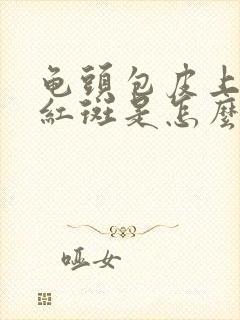 龟頭包皮上
紅斑是怎麼
哑女